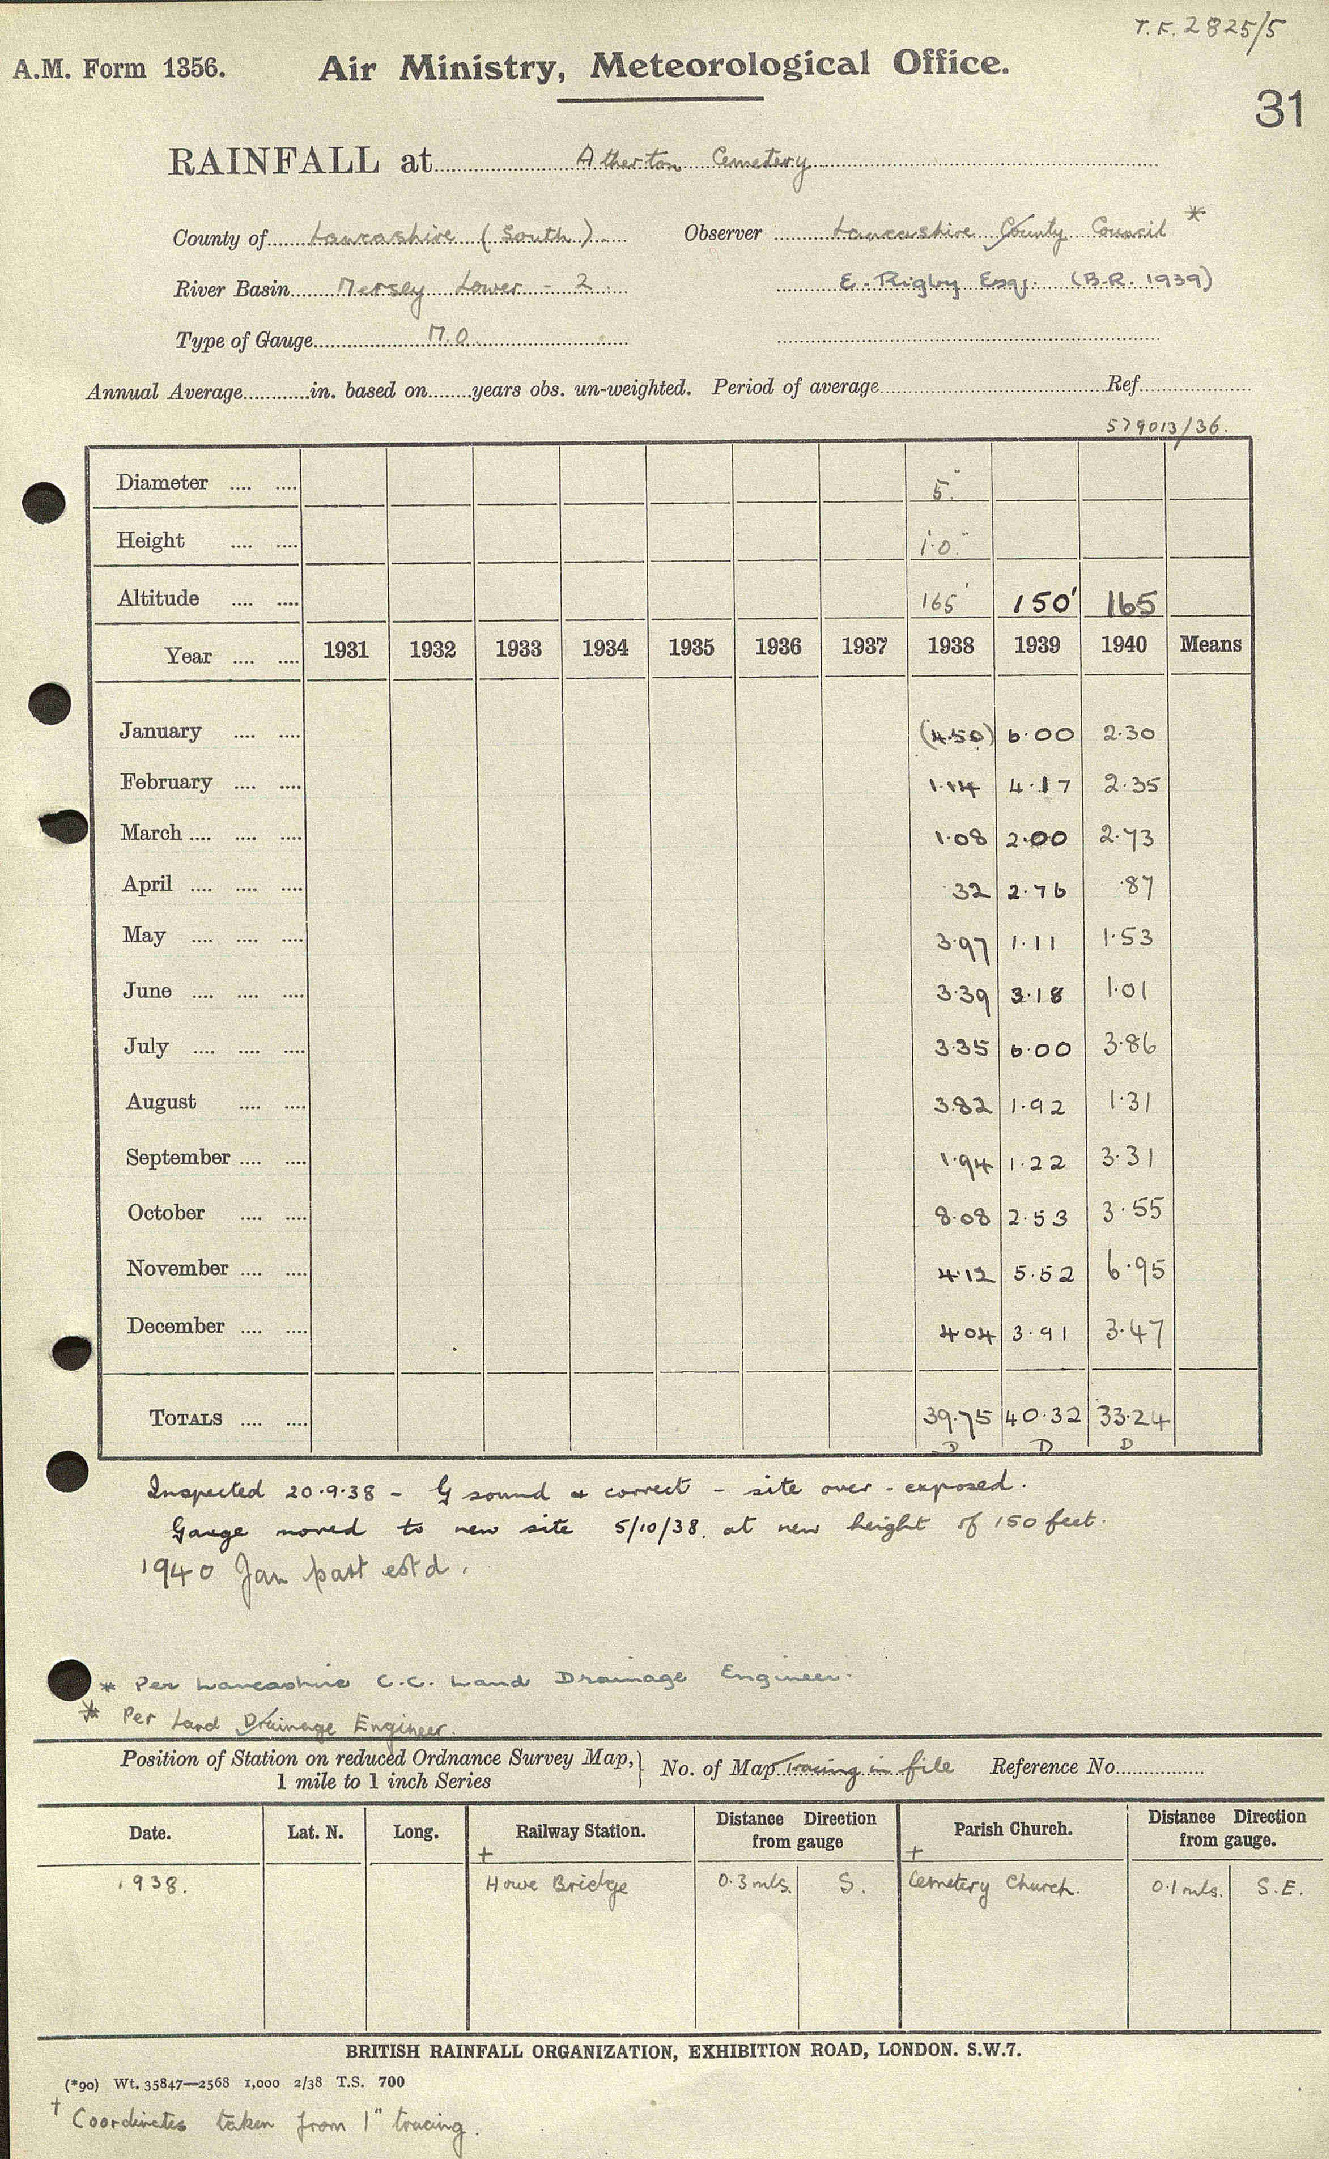 T.F. 2825/5
A.M. Form 1356. Air Ministry, Meteorological Office.
31
RAINFALL at Atherton Cemetery
County of Lancashire (South) Observer Lancashire County Council *
River Basin Mersey Lower - 2. E. Rigby Esq. (B.R. 1939)
Type of Gauge M.O.
Annual Average in. based on years obs. un-weighted. Period of average Ref
579013/36.
Diameter .... .... 5"
Height .... .... 1'.0"
Altitude .... .... 165' 150' 165
Year .... .... 1931 1932 1933 1934 1935 1936 1937 1938 1939 1940 Means
January .... .... (4.50) 6.00 2.30
February .... .... 1.14 4.17 2.35
March .... .... .... 1.08 2.00 2.73
April .... .... .... .32 2.76 .87
May .... .... .... 3.97 1.11 1.53
June .... .... .... 3.39 3.18 1.01
July .... .... .... 3.35 6.00 3.86
August .... .... 3.82 1.92 1.31
September .... .... 1.94 1.22 3.31
October .... .... 8.08 2.53 3.55
November .... .... 4.12 5.52 6.95
December .... .... 4.04 3.91 3.47
TOTALS .... .... 39.75 40.32 33.24
D D D
Inspected 20.9.38 - G sound & correct - site over-exposed.
Gauge moved to new site 5/10/38. at new height of 150 feet.
1940 Jan part est'd.
* Per Lancashire C.C. Land Drainage Engineer.
* Per Land Drainage Engineer.
Position of Station on reduced Ordnance Survey Map, 1 mile to 1 inch Series } No. of Map Tracing in file Reference No.
Date. Lat. N. Long. Railway Station. Distance Direction from gauge Parish Church. Distance Direction from gauge.
+ +
1938. Howe Bridge 0.3 mls. S. Cemetery Church. 0.1 mls. S.E.
BRITISH RAINFALL ORGANIZATION, EXHIBITION ROAD, LONDON. S.W.7.
(*90) Wt. 35847—2568 1,000 2/38 T.S. 700
† Coordinates taken from 1" tracing.